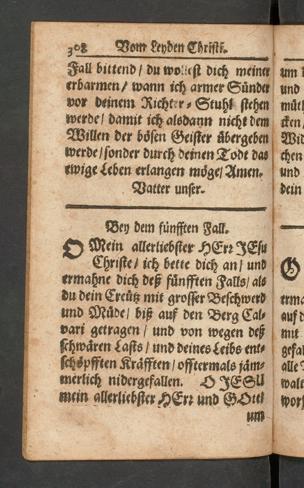 308 Vom Leyden Christi.
Fall bittend / du wollest dich meiner
erbarmen / wann ich armer Sünder
vor deinem Richter-Stuhl stehen
werde / damit ich alsdann nicht dem
Willen der bösen Geister übergeben
werde / sonder durch deinen Tode das
ewige Leben erlangen möge / Amen.
Vatter unser.
Bey dem fünfften Fall.
O Mein allerliebster HErr JEsu
Christe / ich bette dich an / und
ermahne dich deß fünfften Falls / als
du dein Creütz mit grosser Beschwerd
und Müde / biß auf den Berg Cal-
vari getragen / und von wegen deß
schwären Lasts / und deines Leibs ent-
schöpfften Kräfften / offtermals jäm-
merlich nidergefallen. O JESU
mein allerliebster HErr und GOtt!
um